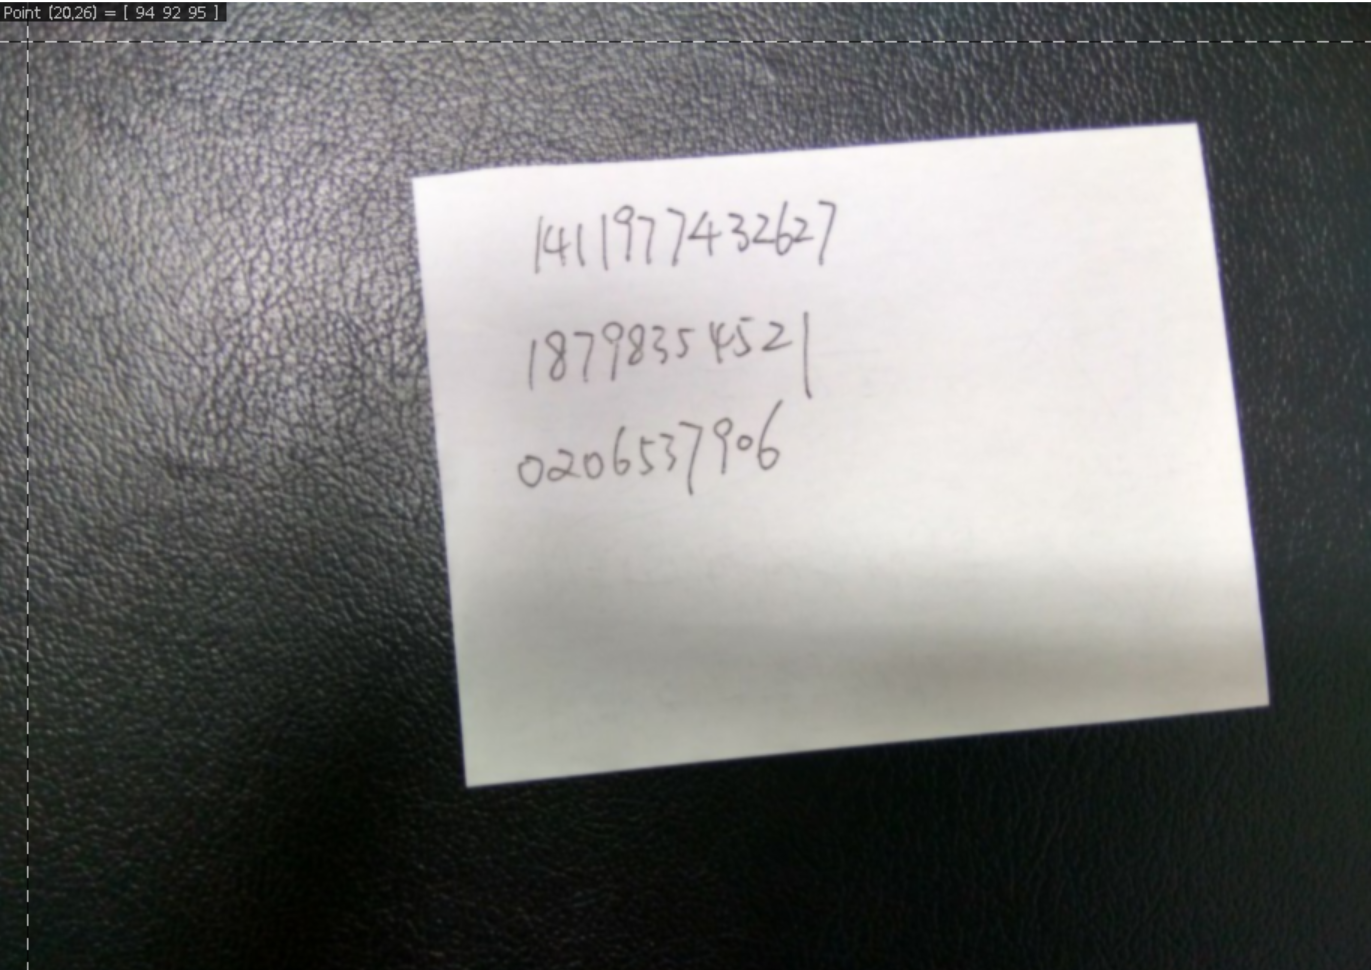 Point (20,26) = [ 94 92 95 ]
1411977432627
18798354521
0206537906